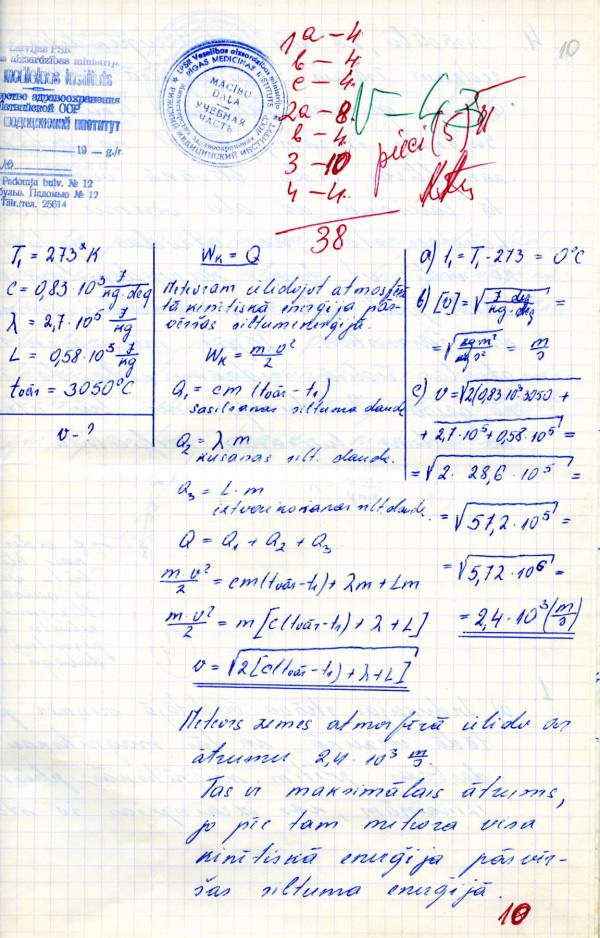 Latvijas PSR
19 — g./г.
Padomju bulv. № 12
бульв. Падомью № 12
Tālr./тел. 25614
LPSR Veselības aizsardzības ministrija
RĪGAS MEDICĪNAS INSTITŪTS
MĀCĪBU
DAĻA
УЧЕБНАЯ
ЧАСТЬ
РИЖСКИЙ МЕДИЦИНСКИЙ ИНСТИТУТ
10
1a – 4
b – 4.
c – 4.
2a – 8.
b – 4.
3 – 10
4 – 4.
38
pieci (5)
T₁ = 273° K
c = 0,83 · 10³ J/kg·deg
λ = 2,7 · 10⁵ J/kg
L = 0,58 · 10⁵ J/kg
tvār = 3050°C
v - ?
Wk = Q
Meteoram ielidojot atmosfērā
tā kinētiskā enerģija pār-
vēršas siltumenerģijā.
Wk = m·v²/2
Q₁ = cm (tvār - t₁)
sasilšanas siltuma daudz.
Q₂ = λ·m
kušanas silt. daudz.
Q₃ = L·m
iztvaikošanas silt. daudz.
Q = Q₁ + Q₂ + Q₃
m·v²/2 = cm(tvār-t₁) + λm + Lm
m·v²/2 = m [c(tvār-t₁) + λ + L]
v = √2[c(tvār-t₁) + λ + L]
a) t₁ = T₁ - 273 = 0°C
b) [v] = √J deg/kg·deg =
= √kg m²/kg s² = m/s
c) v = √2(0,83·10³·3050 +
+ 2,7·10⁵ + 0,58·10⁵ =
= √2 · 28,6 · 10⁵ =
= √57,2 · 10⁵ =
= √5,72 · 10⁶ =
= 2,4 · 10³ (m/s)
Meteors zemes atmosfērā ielido ar
ātrumu 2,4 · 10³ m/s.
Tas ir maksimālais ātrums,
jo pēc tam meteora visa
kinētiskā enerģija pārvēr-
šas siltuma enerģijā.
10